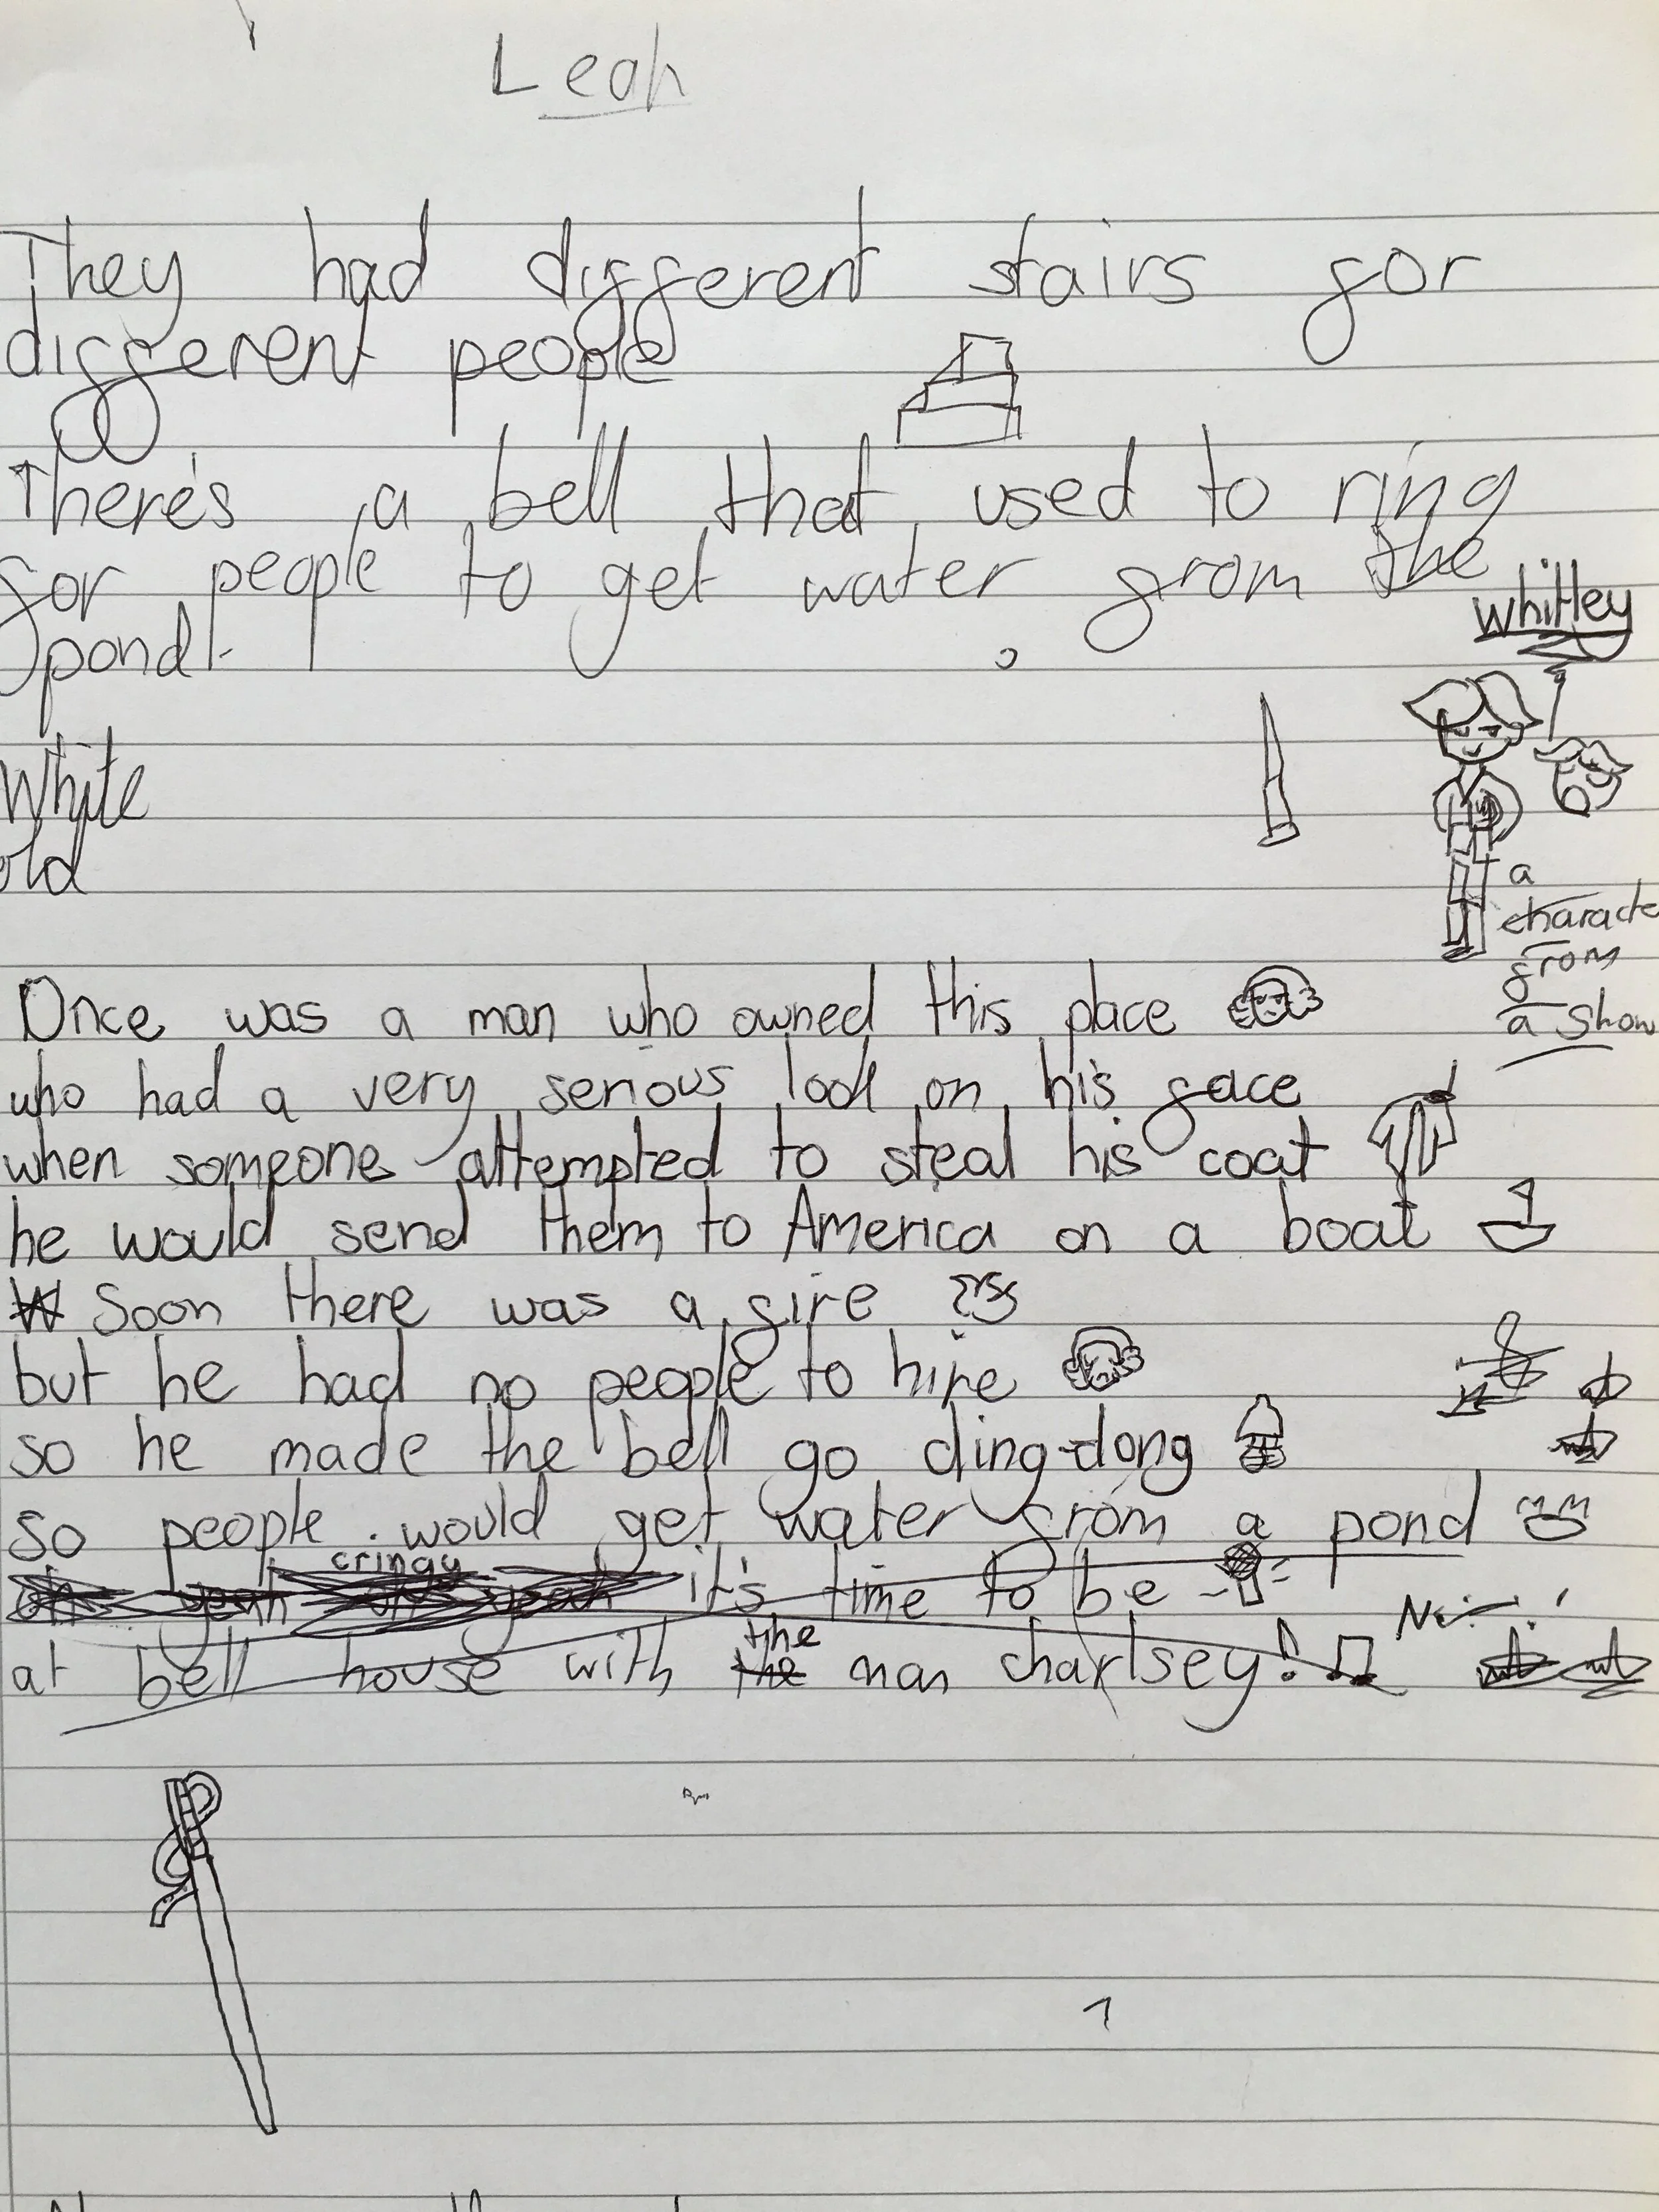 Leah
They had different stairs for
different people
There's a bell that used to ring
for people to get water from the
pond.
whitley
White
old
a
characte
from
a show
Once was a man who owned this place
who had a very serious look on his face
when someone attempted to steal his coat
he would send them to America on a boat
W Soon there was a fire
but he had no people to hire
so he made the bell go ding-dong
so people would get water from a pond
cringy
oh yeah oh yeah it's time to be
the
at bell house with the man charlsey!